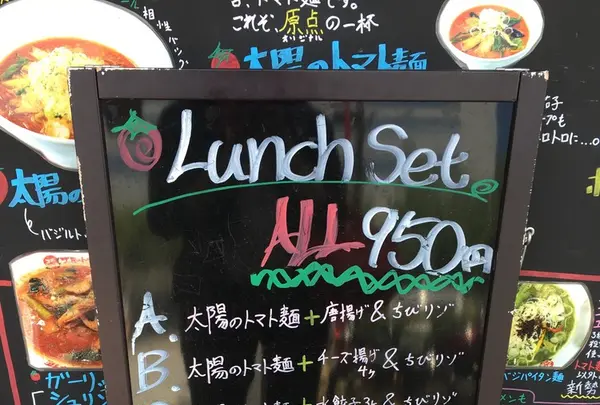 トマト麺です。
これぞ、原点の一杯
オリジナル
太陽のトマト麺
相性
バジルト
Lunch Set
ALL 950円
A. 太陽のトマト麺+唐揚げ&ちびリゾ
B. 太陽のトマト麺+チーズ揚げ4ケ&ちびリゾ
太陽のトマト麺+水餃子3ケ&ちびリゾ
太陽の
ガーリッ
シュリン
バジパイタン麺
新勢